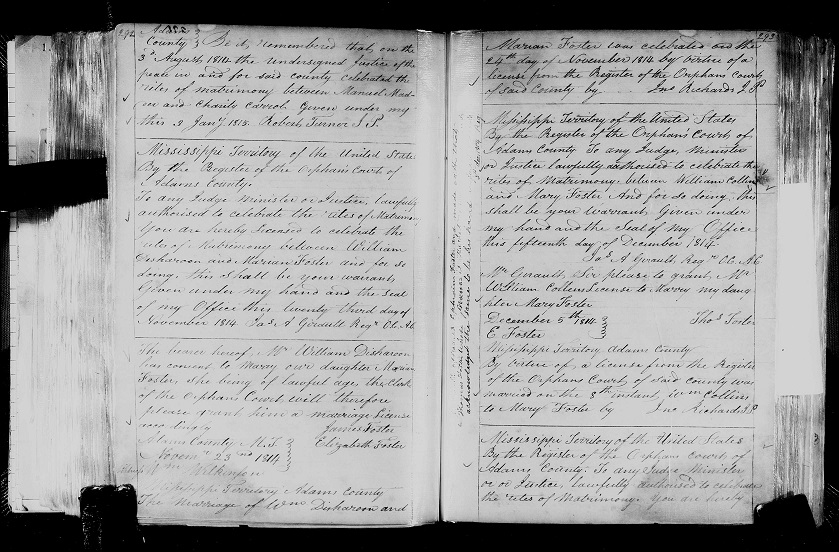 292
Adams
County } Be it remembered that on the
3d August 1814 the undersigned Justice of the
peace in and for said county celebrated the
rites of matrimony between Manuel
and Charity Given under my
this 2 Jany 1815. Robert Turner J. P.
Mississippi Territory of the United States
By the Register of the Orphans Court of
Adams County.
To any Judge Minister or Justice, lawfully
authorised to celebrate the rites of Matrimony
You are hereby licensed to celebrate the
rites of Matrimony between William
Disharoon and Marian Foster and for so
doing, this shall be your warrant
Given under my hand and the Seal
of my Office this twenty third day of
November 1814. Jas. A Girault Regr O.C. A.C.
The bearer hereof, Mr William Disharoon
has consent to Marry our daughter Marian
Foster, she being of lawful age, the Clerk
of the Orphans Court will therefore
please grant him a marriage License
accordingly James Foster
Adams County M. T. } Elizabeth Foster
Novemr 23rd 1814
Wm Wilkinson
Mississippi Territory Adams County
The Marriage of Wm Disharoon and
293
Marian Foster was celebrated on the
24th day of November 1814 by virtue of a
license from the Register of the Orphans Court
of said County by Jno Richards J. P
Mississippi Territory of the United States
By the Register of the Orphans Court of
Adams County To any Judge, Minister
or Justice lawfully authorised to celebrate the
rites of Matrimony between William Collins
and Mary Foster And for so doing this
shall be your warrant Given under
my hand and the Seal of my Office
this fifteenth day of December 1814
Jas. A Girault Regr O.C. A.C
Mr Girault, Sir please to grant Mr
William Collins License to Marry my daug
hter Mary Foster
December 5th 1814 } Thos Foster
E Foster
Mississippi Territory Adams County
By virtue of a license from the Register
of the Orphans Court of said County was
married on the 8th instant, Wm Collins
to Mary Foster by Jno Richards J. P
Mississippi Territory of the United States
By the Register of the Orphans Courts of
Adams County. To any Judge Minister
or or Justice, lawfully authorised to celebrate
the rites of Matrimony. You are hereby